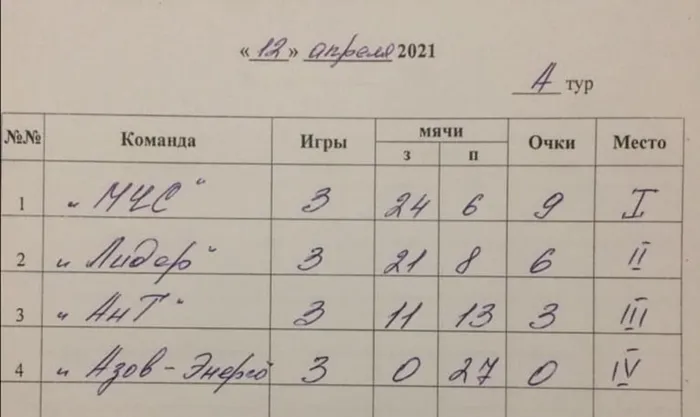 «12» апреля 2021
А тур
№№ Команда Игры мячи Очки Место
з п
1 "МЧС" 3 24 6 9 I
2 "Лидер" 3 21 8 6 II
3 "АнТ" 3 11 13 3 III
4 "Азов-Энерго 3 0 27 0 IV